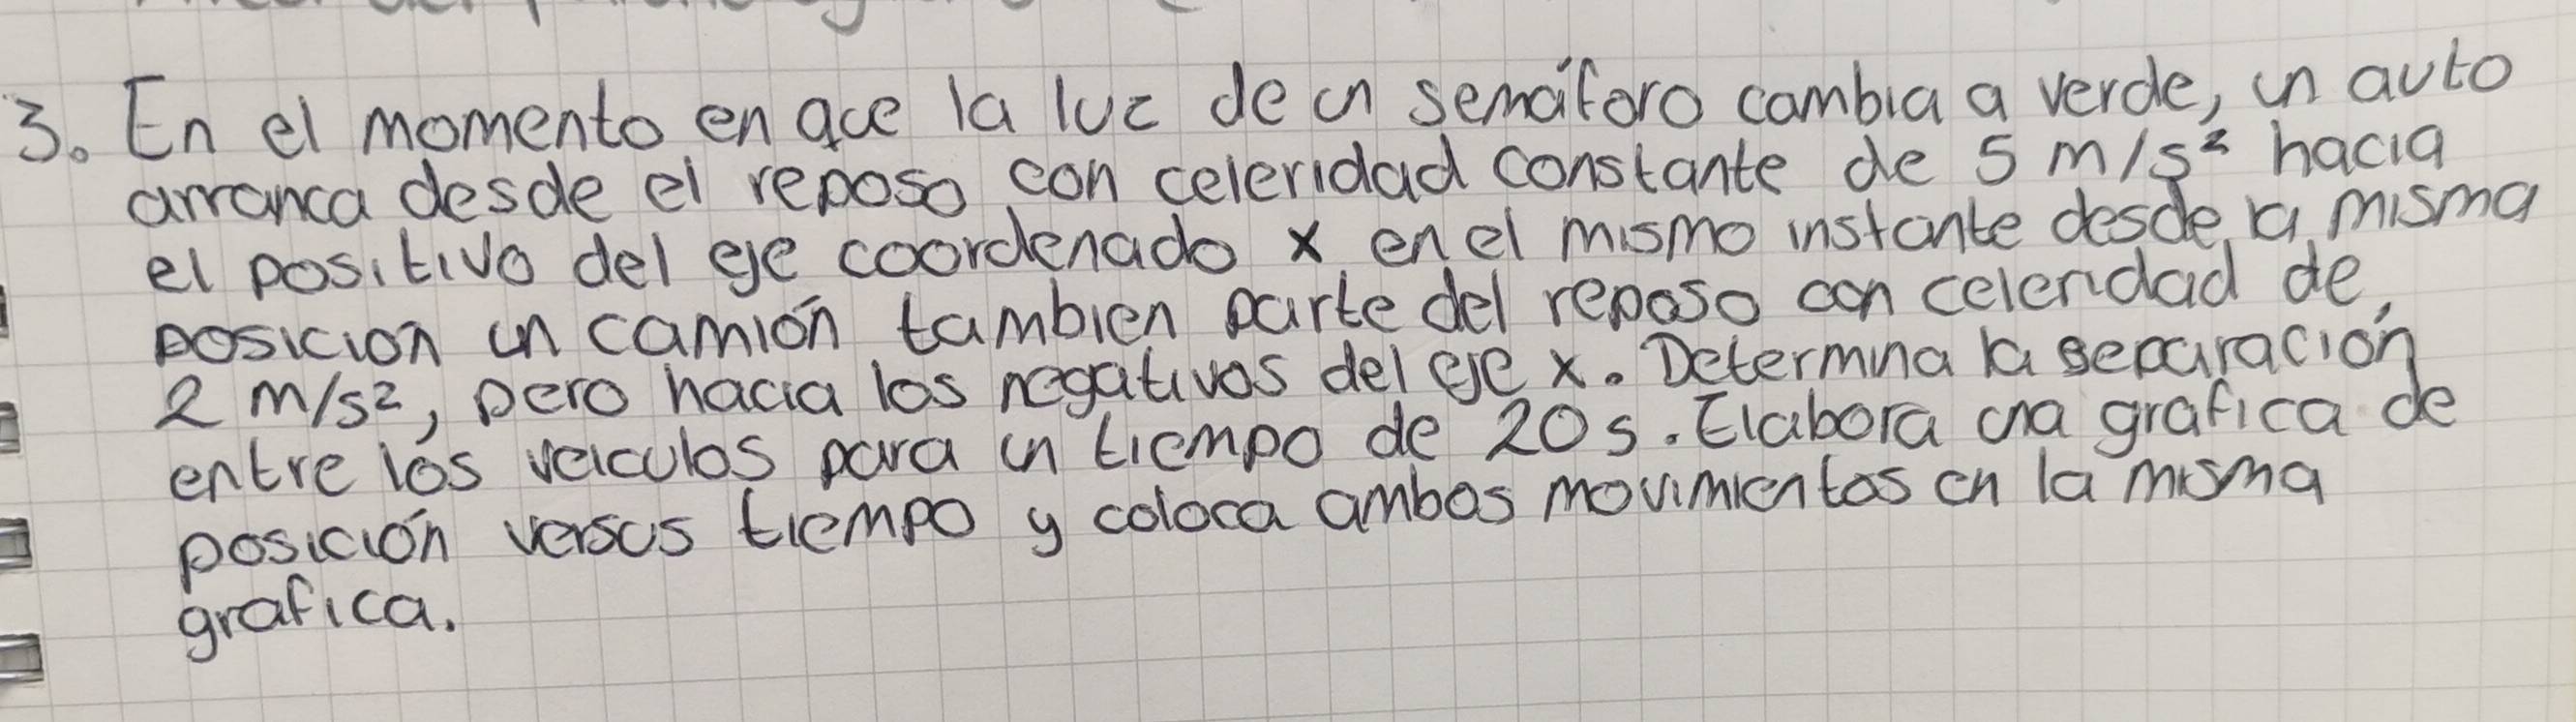 3. En el momento en que la luz de un semáforo cambia a verde, un auto
arranca desde el reposo con celeridad constante de 5 m/s² hacia
el positivo del eje coordenado x en el mismo instante desde la misma
posición un camión tambien parte del reposo con celeridad de
2 m/s², pero hacia los negativos del eje x. Determina la separación
entre los veiculos para un tiempo de 20 s. Elabora una grafica de
posición versus tiempo y coloca ambos movimientos en la misma
grafica.